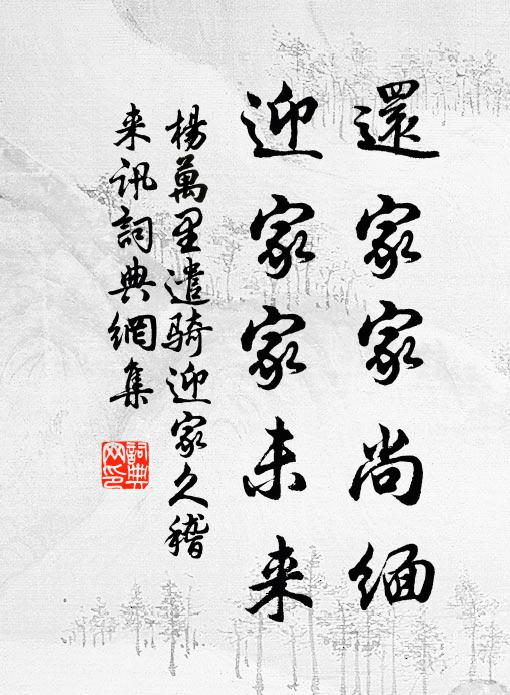 還家家尚緬
迎家家未来
楊萬里遣騎迎家久稽
来讯詞典網集
詞典
网印